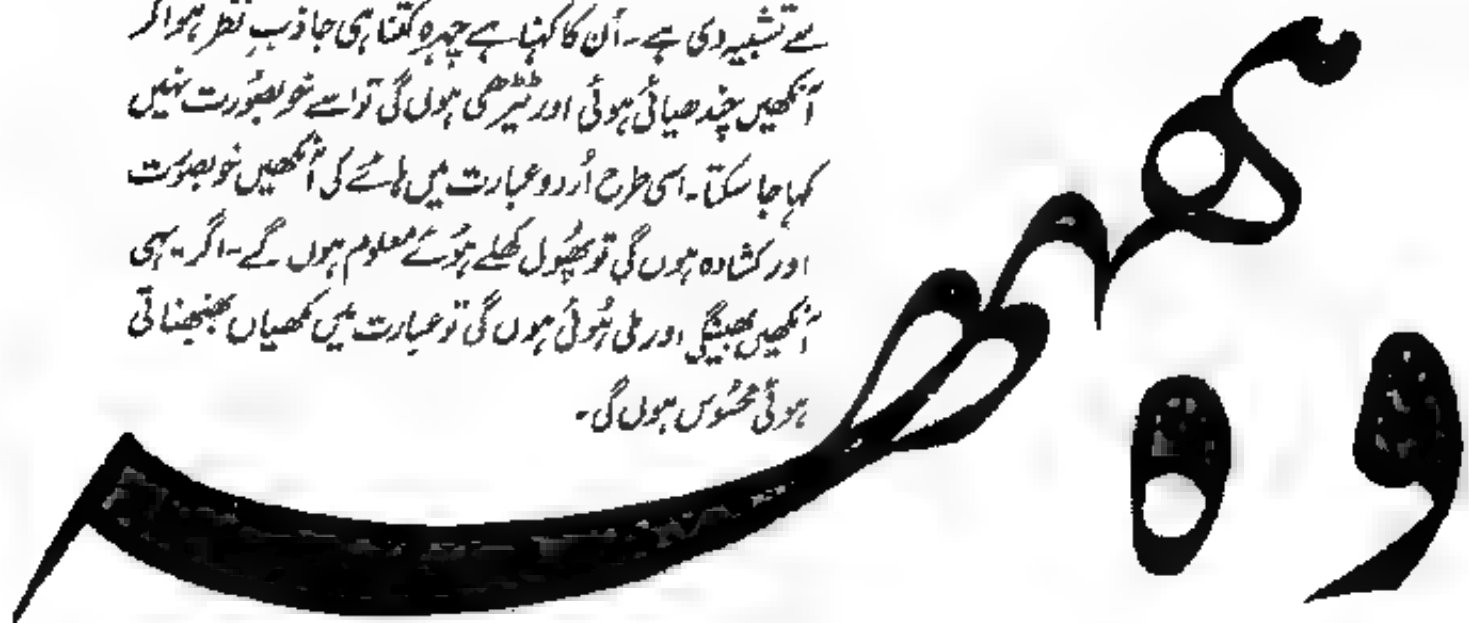 سے تشبیہ دی ہے ۔ اُن کا کہنا ہے چہرہ کتنا ہی جاذبِ نظر ہو اگر
آنکھیں چندھیائی ہوئی اور ٹیڑھی ہوں گی تو اسے خوبصُورت نہیں
کہا جا سکتا ۔ اسی طرح اُردو عبارت میں ہائے کی آنکھیں خوبصُورت
اور کشادہ ہوں گی تو پھُول کھِلے ہوُئے معلوم ہوں گے ۔ اگر یہی
آنکھیں بھینگی اور ملی ہُوئی ہوں گی تو عبارت میں مکھیاں بھنبھناتی
ہوئی محسُوس ہوں گی ۔
و ہ